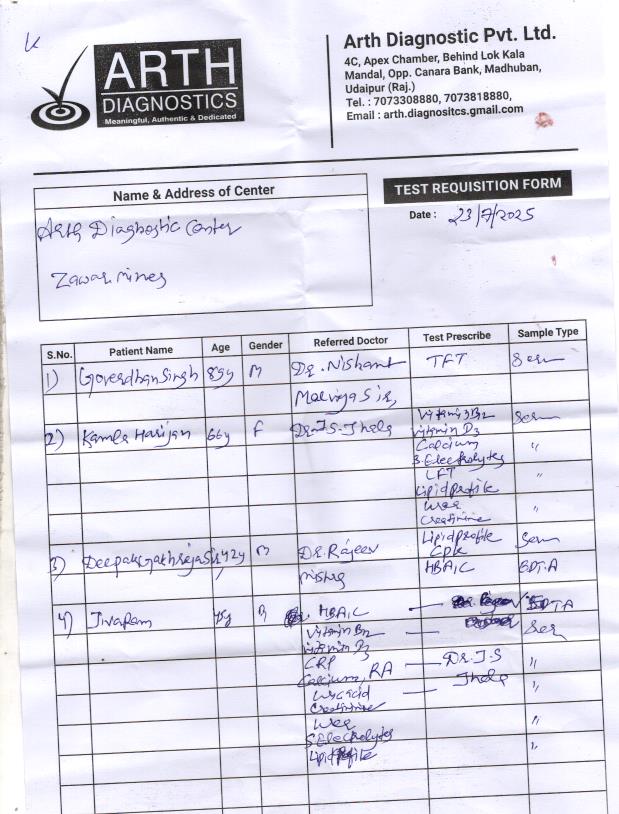 ARTH
DIAGNOSTICS
Meaningful, Authentic & Dedicated
Arth Diagnostic Pvt. Ltd.
4C, Apex Chamber, Behind Lok Kala
Mandal, Opp. Canara Bank, Madhuban,
Udaipur (Raj.)
Tel. : 7073308880, 7073818880,
Email : arth.diagnositcs.gmail.com
Name & Address of Center
TEST REQUISITION FORM
Arth Diagnostic Center
Date : 23/7/2025
Zawar mines
S.No. Patient Name Age Gender Referred Doctor Test Prescribe Sample Type
1) Goverdhan Singh 89y M Dr. Nishant TFT Serum
Malviya Sir,
2) Kamla Harijan 66y F Dr. J.S. Jhala Vitamin B12 Serum
Vitamin D3
Calcium "
S. Electrolytes
LFT "
Lipid profile
Urea "
Creatinine
3) Deepak 42y M Dr. Rajeev Lipid profile Serum
CPK
Mishra HBA1C EDTA
4) Jivaram 75y HBA1C EDTA
Vitamin B12 Ser
Vitamin D3
CRP Dr. J.S "
Calcium, RA
Uric acid Jhala "
Creatinine
Urea "
S Electrolytes
Lipid profile "